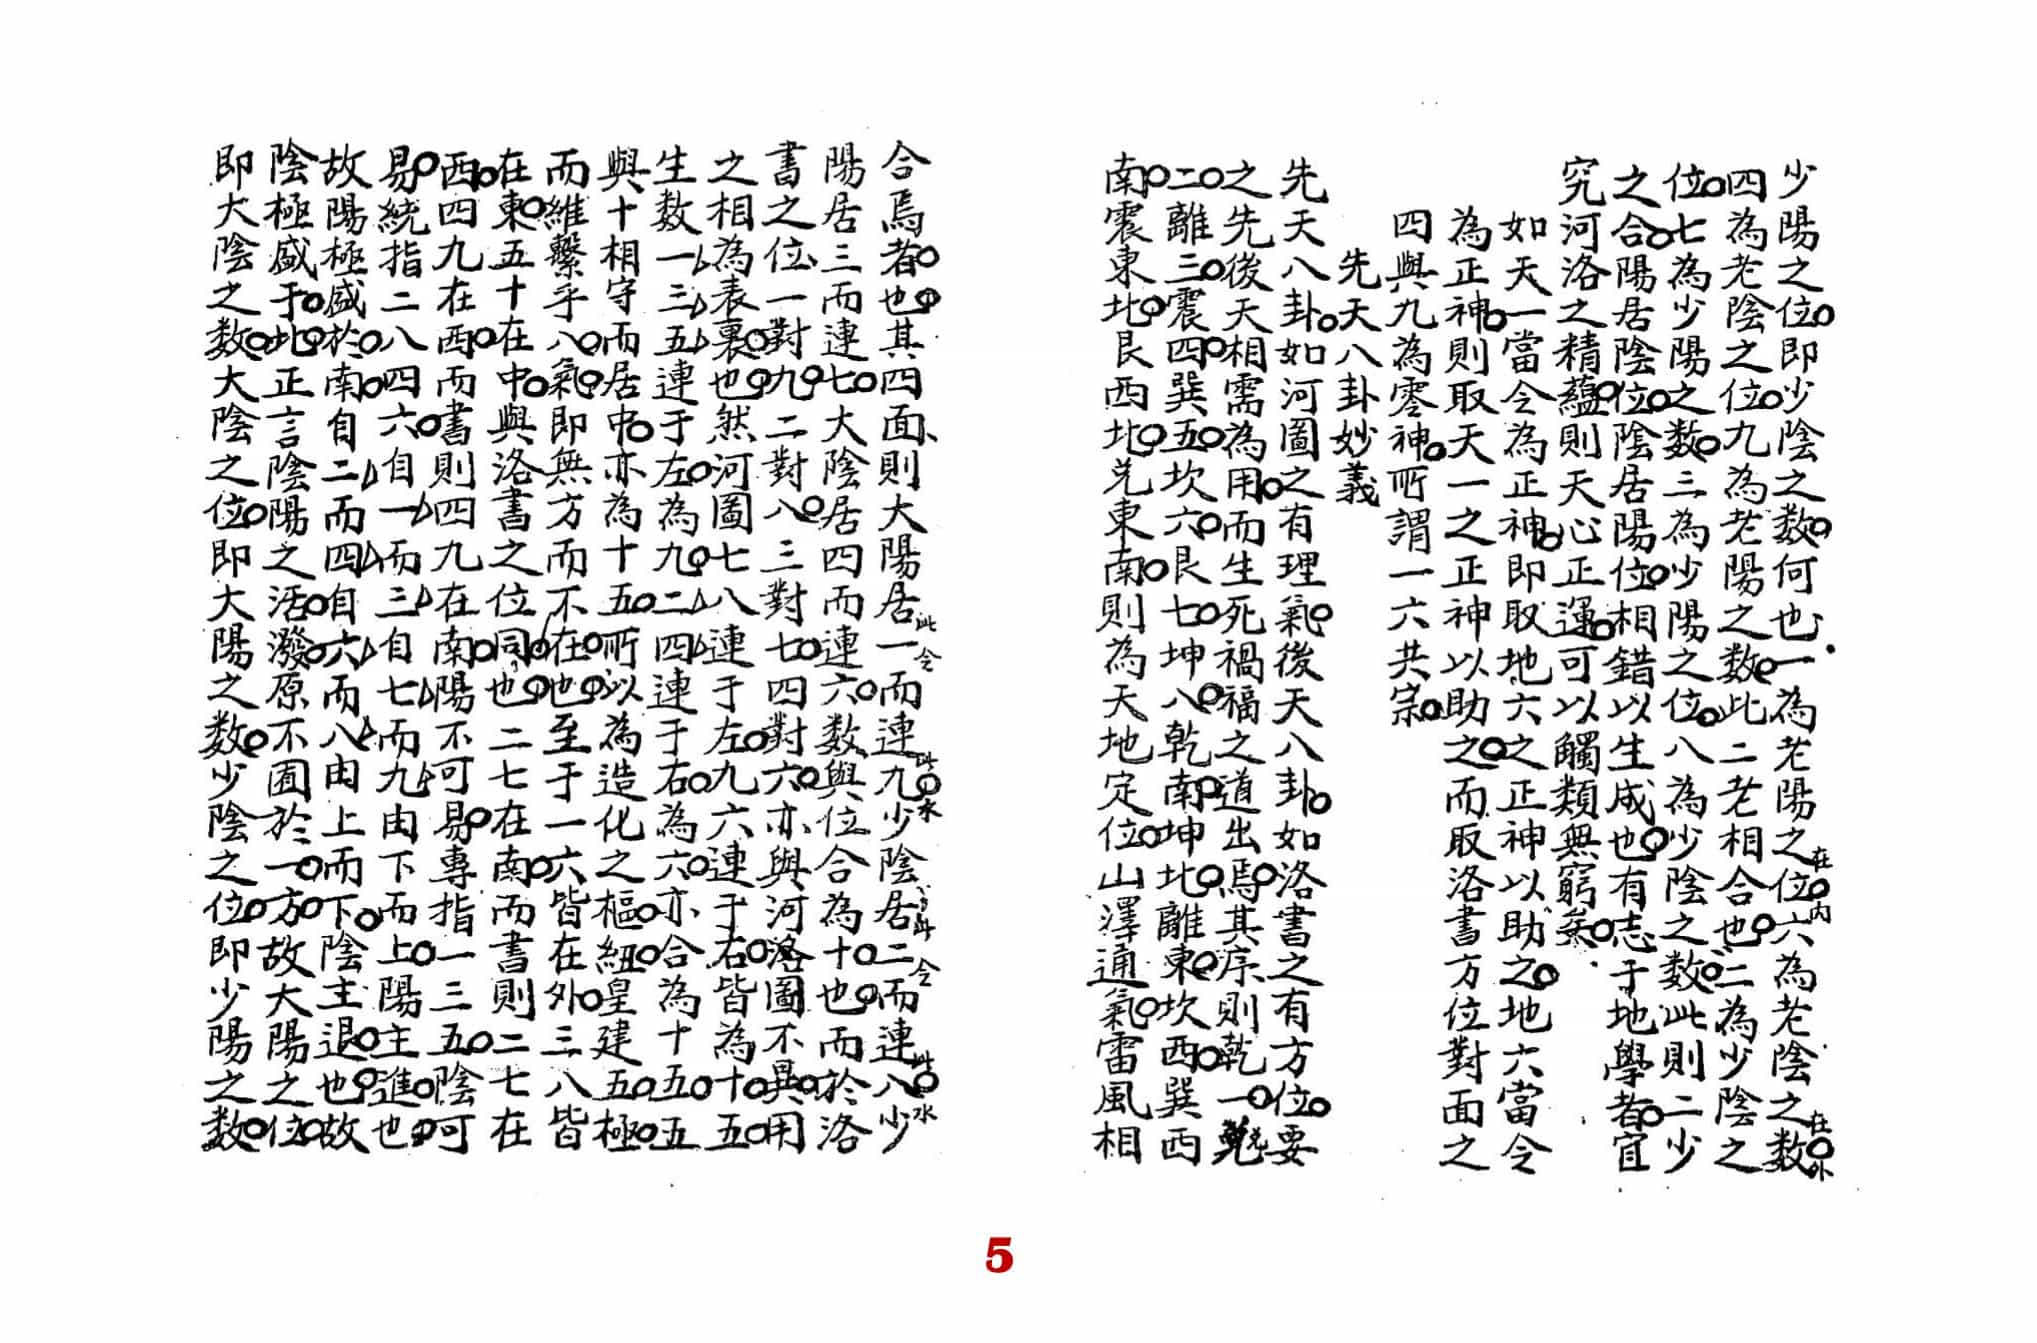 少陽之位即少陰之數何也一為老陽之位六為老陰之數
四為老陰之位九為老陽之数此二老相合也二為少陰之
位七為少陽之数三為少陽之位八為少陰之数此則二少
之合陽居陰位陰居陽位相錯以生成也有志于地學者宜
究河洛之精蘊則天心正運可以觸類無窮矣
如天一當令為正神即取地六之正神以助之地六當令
為正神則取天一之正神以助之而取洛書方位對面之
四與九為零神所謂一六共宗
先天八卦妙義
先天八卦如河圖之有理氣後天八卦如洛書之有方位要
之先後天相需為用而生死禍福之道出焉其序則乾一兌
二離三震四巽五坎六艮七坤八乾南坤北離東坎西巽西
南震東北艮西北兌東南則為天地定位山澤通氣雷風相
合焉者也其四面則大陽居一而連九少陰居二而連八少
陽居三而連七大陰居四而連六数與位合為十也而於洛
書之位一對九二對八三對七四對六亦與河洛圖不異用
之相為表裏也然河圖七八連于左九六連于右皆為十五
生数一三五連于左為九二四連于右為六亦合為十五五
與十相守而居中亦為十五所以為造化之樞紐皇建五極
而維繫乎八氣即無方而不在也至于一六皆在外三八皆
在東五十在中與洛書之位同也二七在南而書則二七在
西四九在西而書則四九在南陽不可易專指一三五陰可
易統指二八四六自一而三自七而九由下而上陽主進也
故陽極盛於南自二而四自六而八由上而下陰主退也故
陰極盛于北正言陰陽之活潑原不囿於一方故大陽之位
即大陰之数大陰之位即大陽之数少陰之位即少陽之数
5